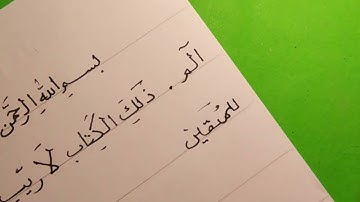 بسم الله الرحمن
آلم. ذلك الكتاب لا ريب
للمتقين